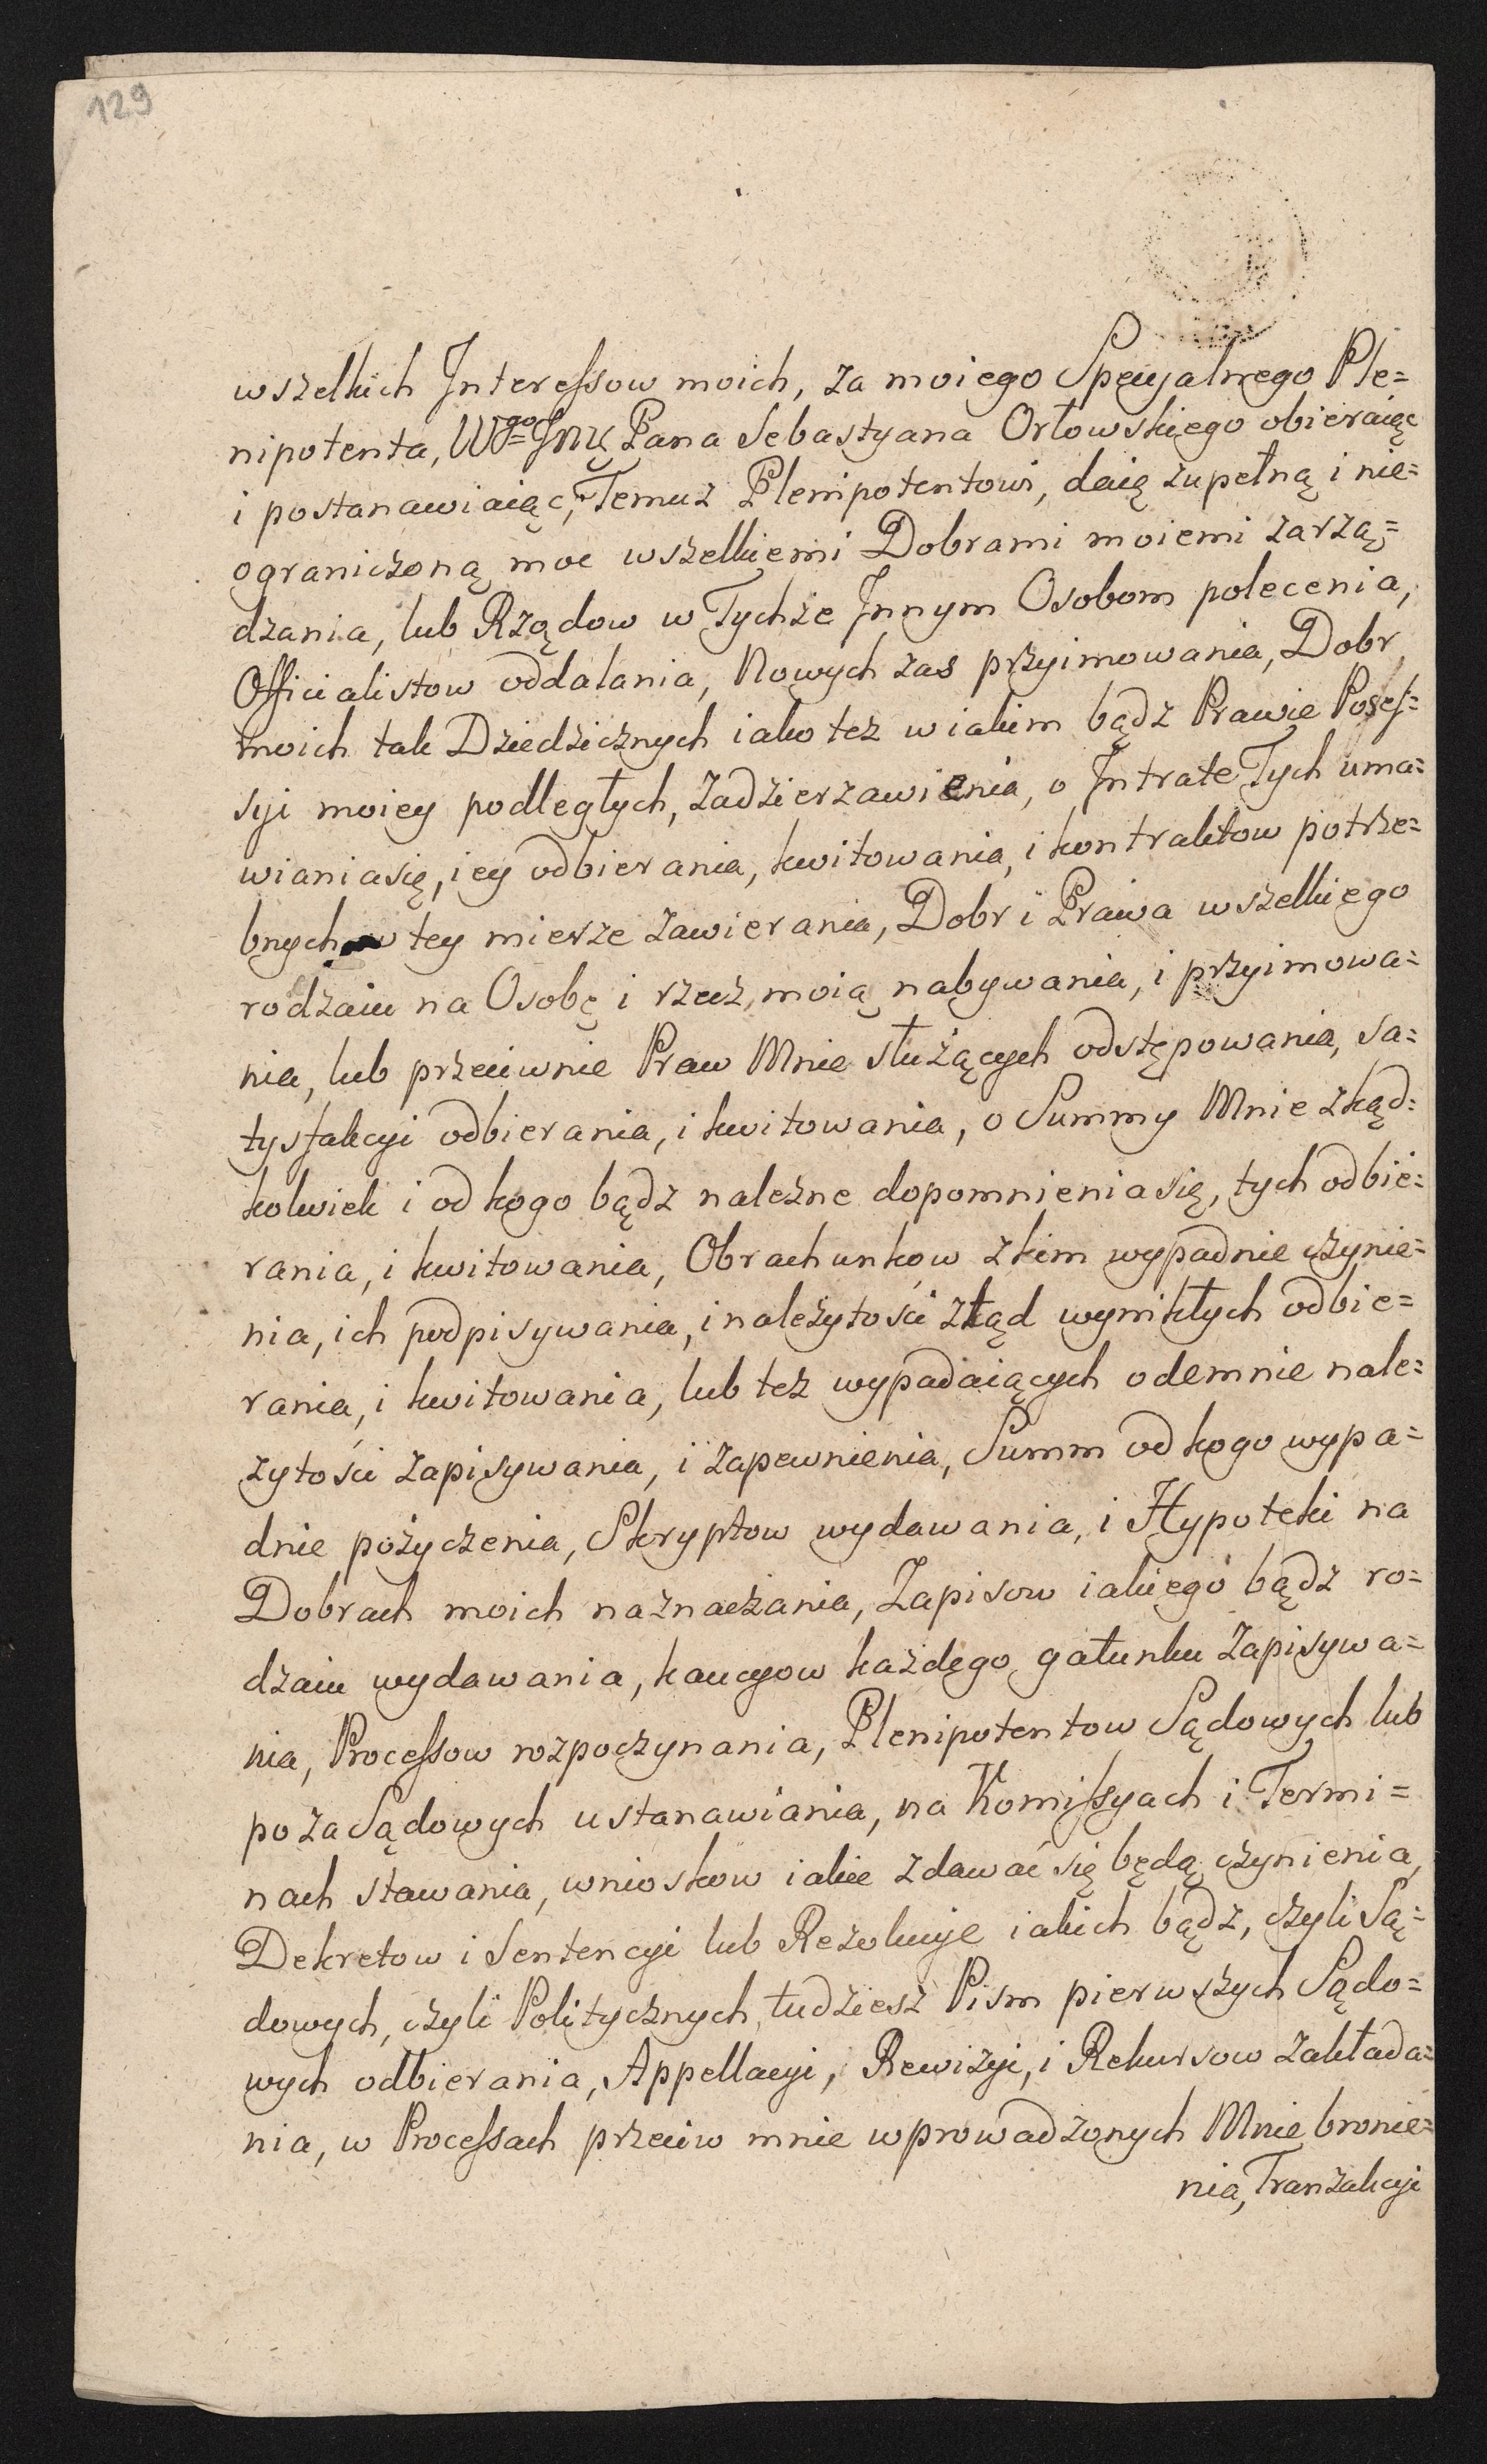 129
wszelkich Interessow moich, za moiego Specyalnego Ple=
nipotenta, Wgo Jmę Pana Sebastyana Orłowskięgo obieraiąc
i postanawiaiąc, Temuz Plenipotentowi, daię zupełną i nie=
ograniczoną moc wszelkięmi Dobrami moiemi zarzą=
dzania, lub Rządow w Tychże Innym Osobom polecenia,
Officialistow oddalania, Nowych zas przyimowania, Dobr
moich tak Dziedzicznych iako tez w iakim bądz Prawie Posses=
syi moiey podległych, Zadzierzawienia, o Intrate Tych uma=
wiania się, iey odbierania, kwitowania, i kontraktow potrze=
bnych w tey mierze zawierania, Dobr i Prawa wszelkiego
rodzaiu na Osobę i rzecz, moią nabywania, i przyimowa=
nia, lub przeciwnie Praw Mnie służących odstępowania, sa=
tysfakcyi odbierania, i kwitowania, o Summy Mnie zkąd=
kolwiek i od kogo bądz należne dopomnienia się, tych odbie=
rania, i kwitowania, Obrachunkow z kim wypadnie czynie=
nia, ich podpisywania, i należytości ztąd wynikłych odbie=
rania, i kwitowania, lub tez wypadaiących odemnie nale=
zytości zapisywania, i zapewnienia, Summ od kogo wypa=
dnie pożyczenia, Skryptow wydawania, i Hypoteki na
Dobrach moich naznaczania, Zapisow iakiego bądz ro=
dzaiu wydawania, kaucyow każdego gatunku Zapisywa=
nia, Processow rozpoczynania, Plenipotentow Sądowych lub
poza Sądowych ustanawiania, na Komissyach i Termi=
nach stawania, wnioskow iakie zdawać się będą czynienia,
Dekretow i Sentencyi lub Rezolucye iakich bądz, czyli Są=
dowych, czyli Politycznych, tudziesz Pism pierwszych Sądo=
wych odbierania, Appellacyi, Rewizyi, i Rekursow zakłada=
nia, w Processach przeciw mnie wprowadzonych Mnie bronie=
nia, Tranzakcyi